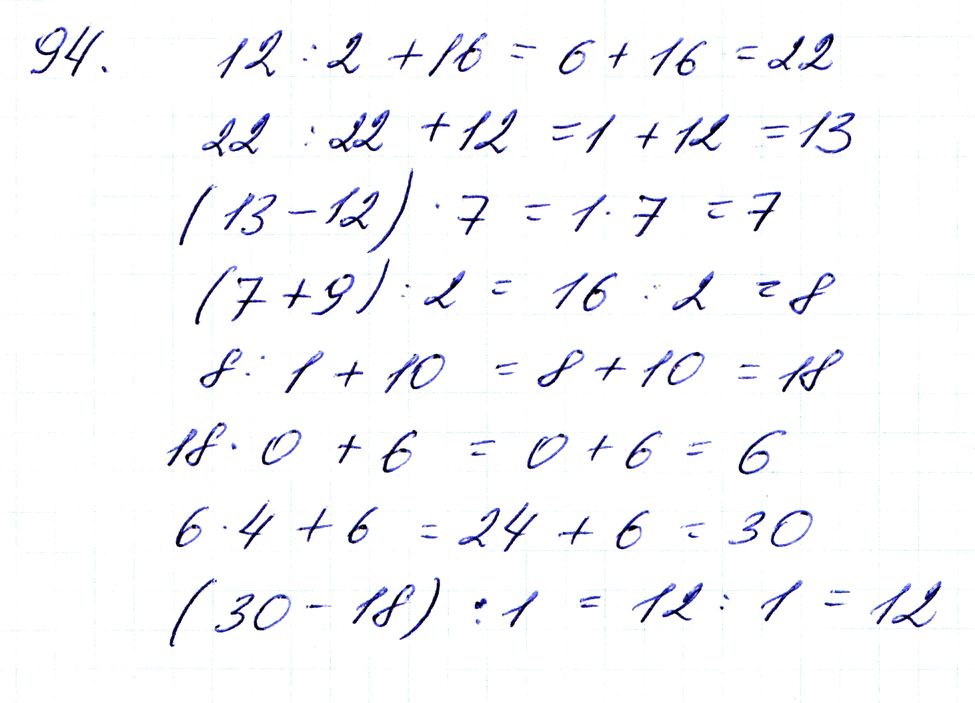 94. 12 : 2 + 16 = 6 + 16 = 22
22 : 22 + 12 = 1 + 12 = 13
(13 - 12) · 7 = 1 · 7 = 7
(7 + 9) : 2 = 16 : 2 = 8
8 : 1 + 10 = 8 + 10 = 18
18 · 0 + 6 = 0 + 6 = 6
6 · 4 + 6 = 24 + 6 = 30
(30 - 18) : 1 = 12 : 1 = 12